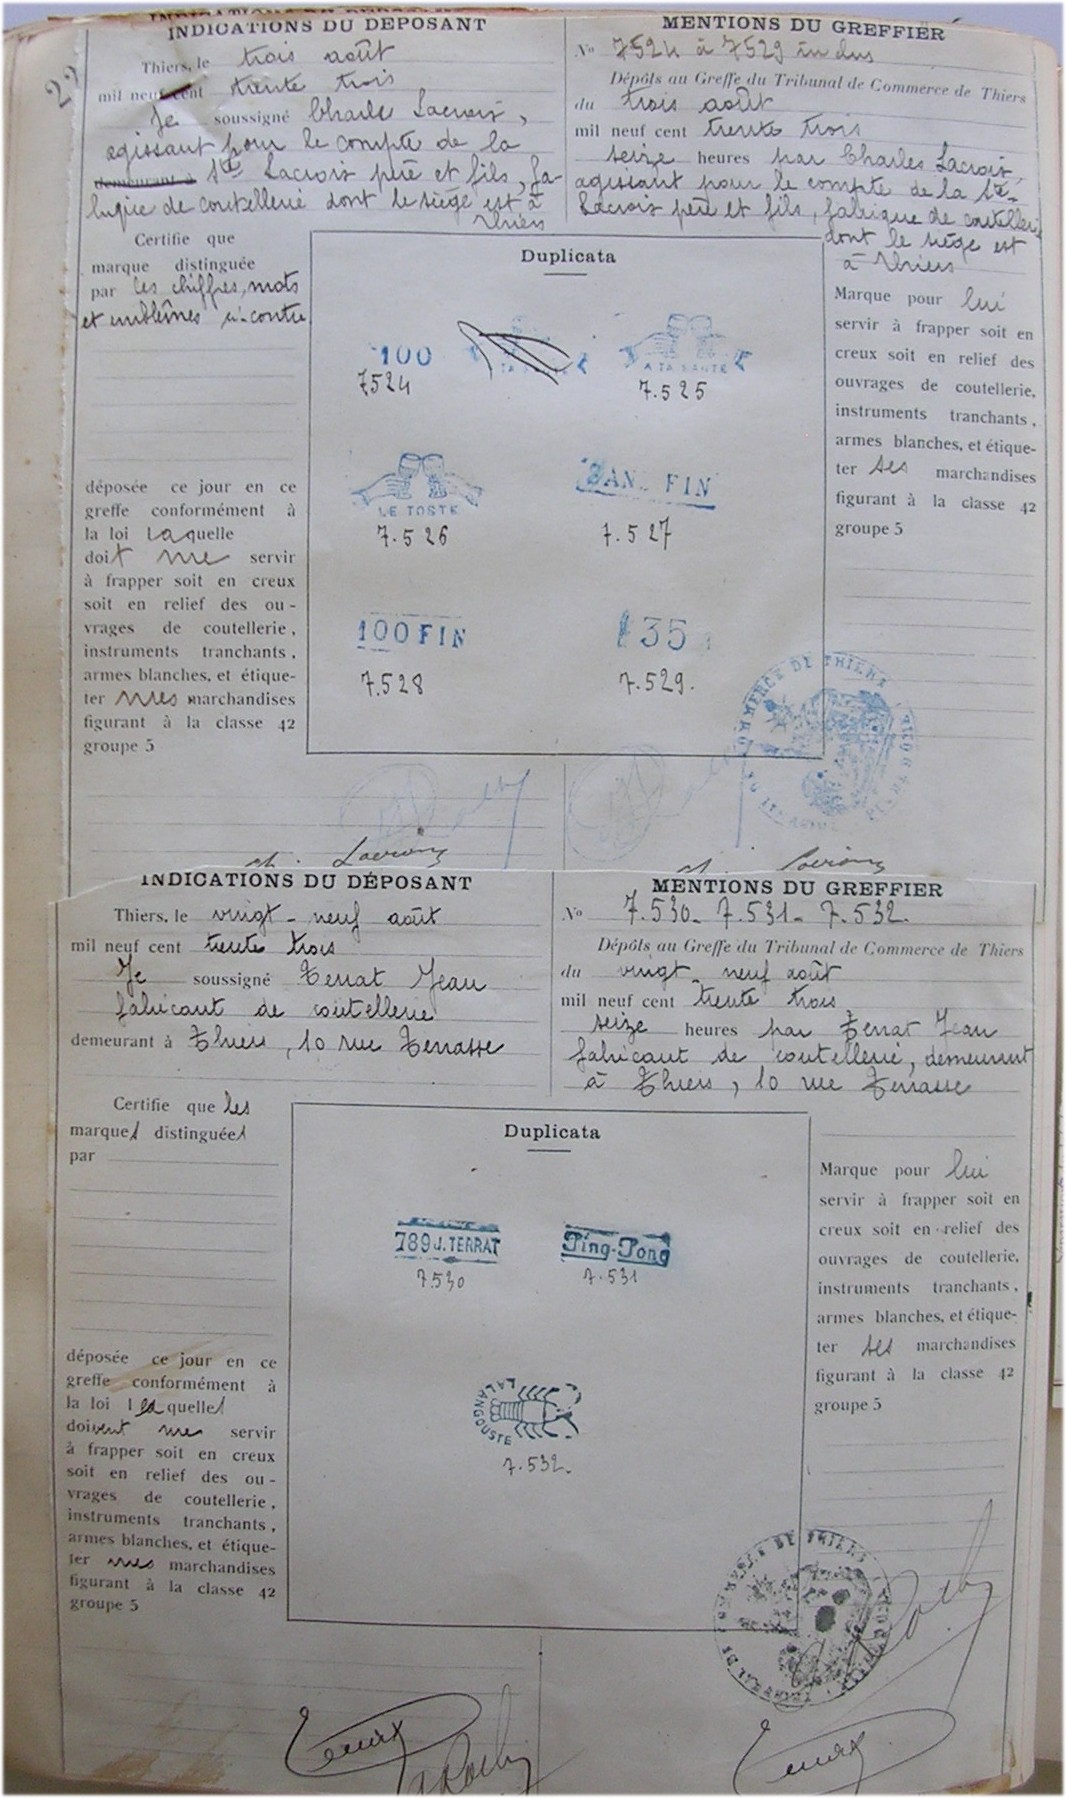 22
INDICATIONS DU DÉPOSANT
Thiers, le trois août
mil neuf cent trente trois
Je soussigné Charles Lacroix,
agissant pour le compte de la
demeurant à Sté Lacroix père et fils, fa-
brique de coutellerie dont le siège est à
Thiers
Certifie que
marque distinguée
par les chiffres, mots
et emblêmes ci-contre
déposée ce jour en ce
greffe conformément à
la loi laquelle
doit me servir
à frapper soit en creux
soit en relief des ou-
vrages de coutellerie,
instruments tranchants,
armes blanches, et étique-
ter mes marchandises
figurant à la classe 42
groupe 5
MENTIONS DU GREFFIER
No 7524 à 7529 inclus
Dépôts au Greffe du Tribunal de Commerce de Thiers
du trois août
mil neuf cent trente trois
seize heures par Charles Lacroix,
agissant pour le compte de la Sté-
Lacroix père et fils, fabrique de coutellerie
dont le siège est
à Thiers
Duplicata
100
7524
A TA SANTE
7.525
LE TOSTE
7.526
FIN
7.527
100 FIN
7.528
135
7.529.
Marque pour lui
servir à frapper soit en
creux soit en relief des
ouvrages de coutellerie,
instruments tranchants,
armes blanches, et étique-
ter ses marchandises
figurant à la classe 42
groupe 5
COMMERCE DE THIERS
ch. Lacroix
ch. Lacroix
INDICATIONS DU DÉPOSANT
Thiers, le vingt-neuf août
mil neuf cent trente trois
Je soussigné Terrat Jean
fabricant de coutellerie
demeurant à Thiers, 10 rue Terrasse
Certifie que les
marques distinguées
par
déposée ce jour en ce
greffe conformément à
la loi lesquelles
doivent me servir
à frapper soit en creux
soit en relief des ou-
vrages de coutellerie,
instruments tranchants,
armes blanches, et étique-
ter mes marchandises
figurant à la classe 42
groupe 5
MENTIONS DU GREFFIER
No 7.530- 7.531- 7.532.
Dépôts au Greffe du Tribunal de Commerce de Thiers
du vingt neuf août
mil neuf cent trente trois
seize heures par Terrat Jean
fabricant de coutellerie, demeurant
à Thiers, 10 rue Terrasse
Duplicata
789 J. TERRAT
7530
Ping-Pong
7.531
LA LANGOUSTE
7.532.
Marque pour lui
servir à frapper soit en
creux soit en relief des
ouvrages de coutellerie,
instruments tranchants,
armes blanches, et étique-
ter ses marchandises
figurant à la classe 42
groupe 5
TRIBUNAL DE COMMERCE DE THIERS
Terrat
Terrat